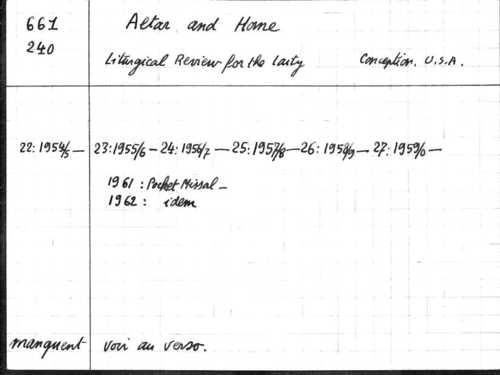 661 Altar and Home
240
Liturgical Review for the Laity Conception. U.S.A.
22:1954/5 — 23:1955/6 — 24:1956/7 — 25:1957/8 — 26:1958/9 — 27:1959/0 —
1961 : Pocket Missal —
1962 : idem
manquent voir au verso.